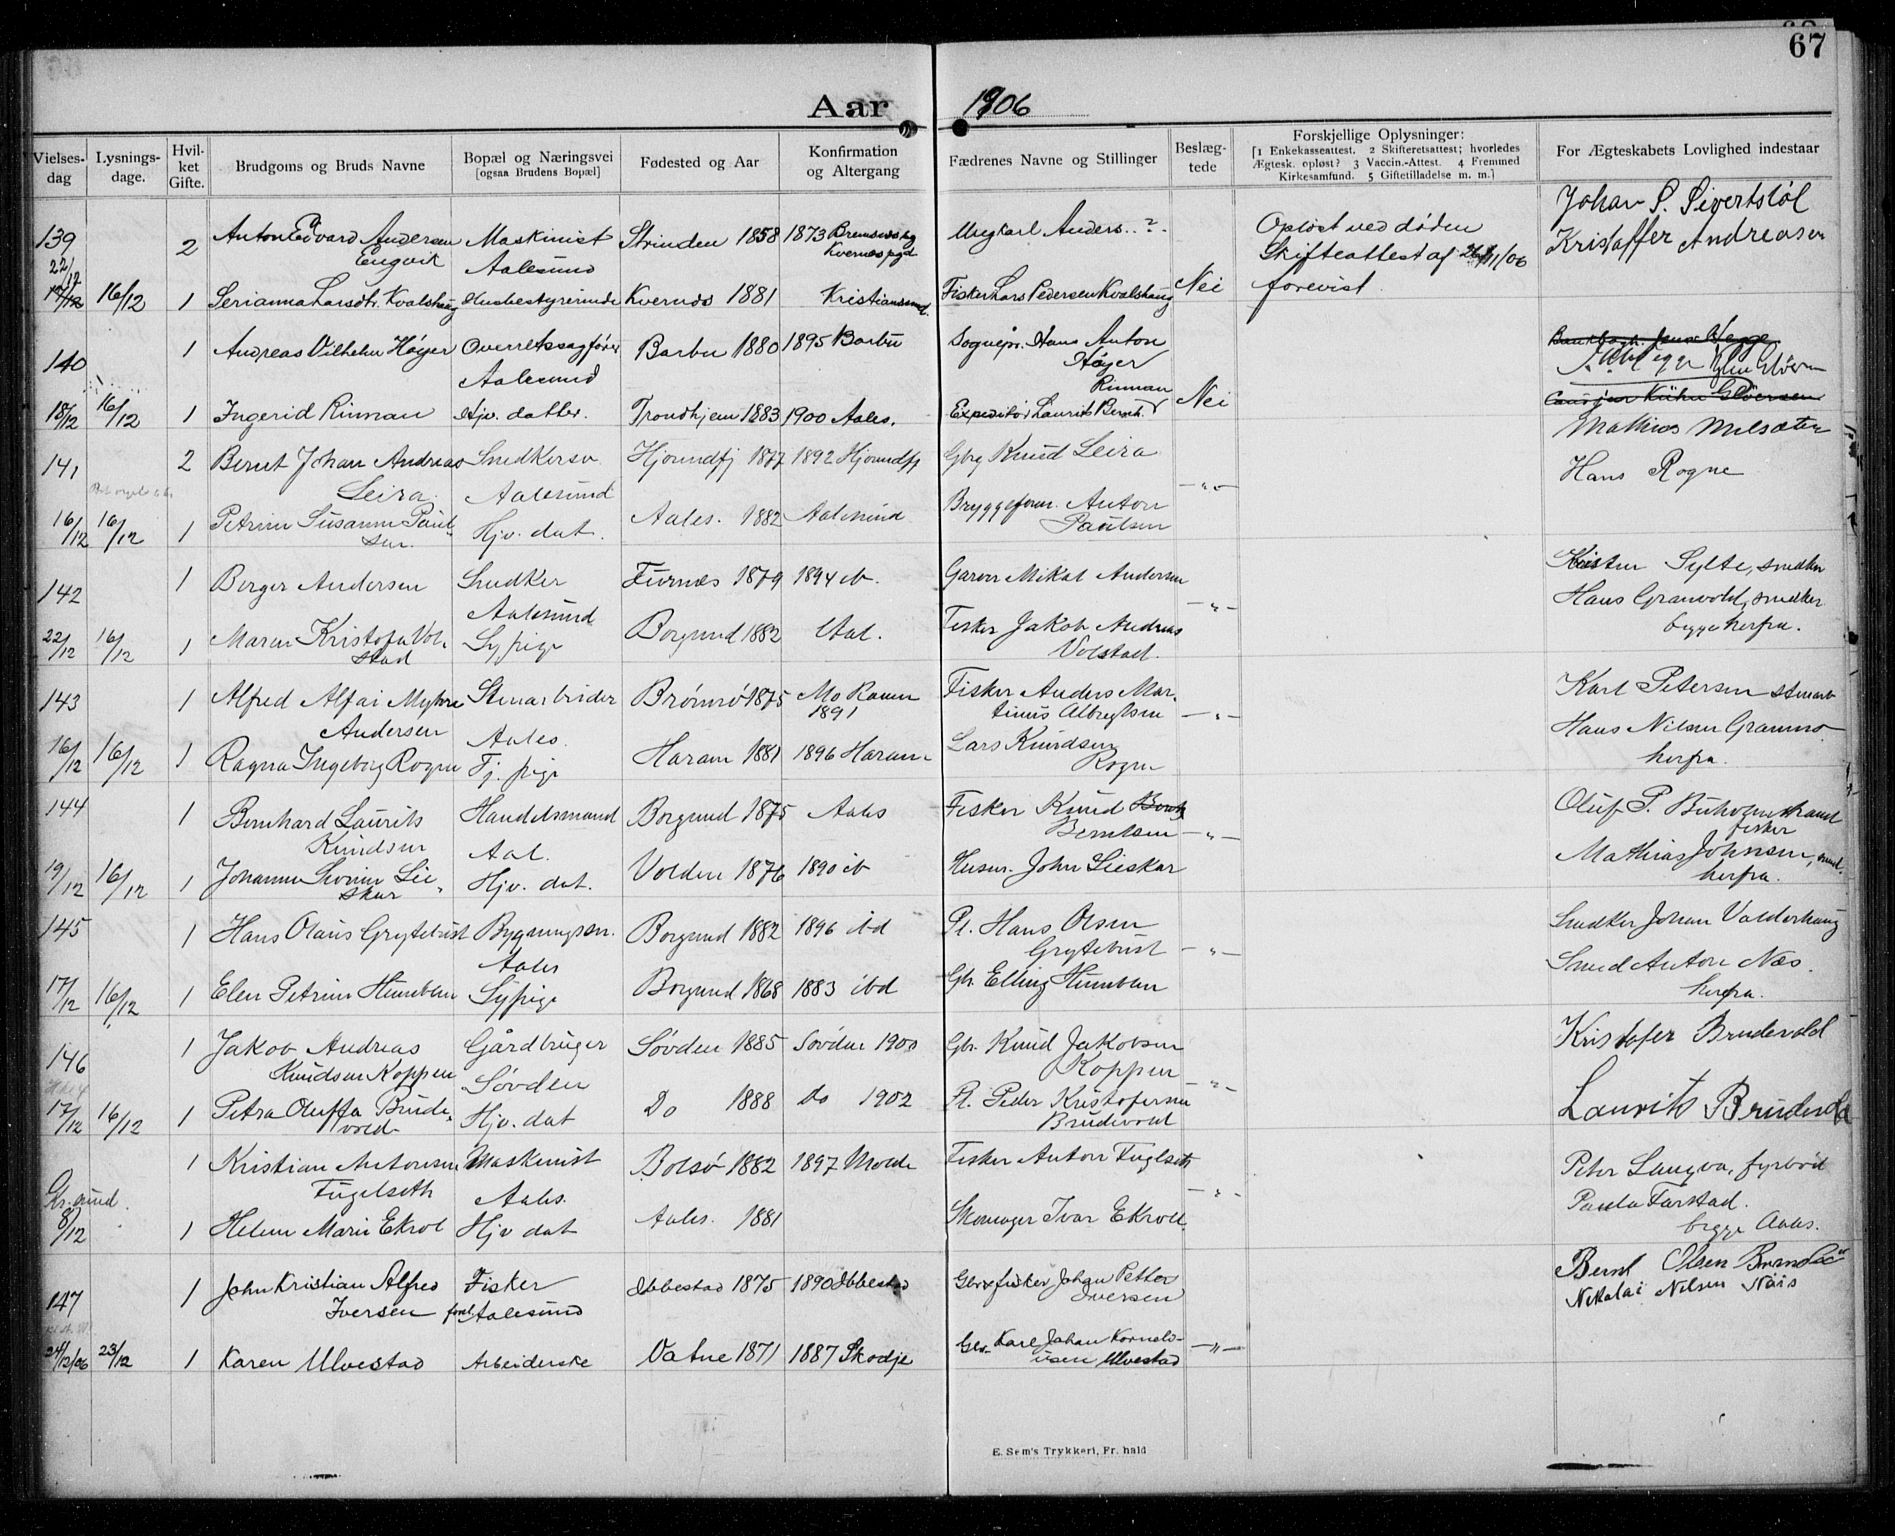 67
Aar 1906
Vielses-dag
Lysnings-dage.
Hvil-ket Gifte.
Brudgoms og Bruds Navne
Bopæl og Næringsvei [ogsaa Brudens Bopæl]
Fødested og Aar
Konfirmation og Altergang
Fædrenes Navne og Stillinger
Beslæg-tede
Forskjellige Oplysninger:
[1 Enkekasseattest. 2 Skifteretsattest; hvorledes
Ægtesk. opløst? 3 Vaccin.-Attest. 4 Fremmed
Kirkesamfund. 5 Giftetilladelse m. m.]
For Ægteskabets Lovlighed indestaar
139 2 Anton Edvard Andersen Engvik Maskinist Aalesund Strinden 1858 1873 Ungkarl Anders..?. Opløst ved døden
Skifteattest af 26/11/06
forevist.
Johan S. Sivertstøl
Kristoffer Andreasen
22/12 16/12 1 Serianna Larsdtr. Kvalshaug Husbestyrerinde Kvernes 1881 Kristiansund. Fisker Lars Pedersen Kvalshaug Nei
140 1 Andreas Vilhelm Høyer Overretssagfører Aalesund Barbu 1880 1895 Barbu Sognepr. Hans Anton Høyer
18/12 16/12 1 Ingerid Rinnan Hjv. datter. Trondhjem 1883 1900 Aales. Expeditør Laurits Bernh. Rinnan Nei
141 2 Bernt Johan Andreas Leira Snedkersv. Aalesund Hjørundfj 1877 1892 Hjørundfj Gbr Knud Leira -"-
Mathias Melsæter
Hans Rogne
16/12 16/12 1 Petrine Susanne Paulsen. Hjv. dat. Aales. 1882 Aalesund Bryggeform. Anton Paulsen
142 1 Berger Andersen Snedker Aalesund Furnes 1879 1894 ib. Mikal Andersen -"-
Sylte, snedker
Hans Granvold, snedker
begge herfra.
22/12 16/12 1 Maren Kristofa Volstad Sypige Borgund 1882 Aal. Fisker Jakob Andreas Volstad.
143 1 Alfred Alfai Myhre Andersen Stenarbeider Aales. Brønnø 1875 Mo Ranen 1891 Fisker Anders Martinus Albregtsen -"-
Karl Petersen stenarb
Hans Nilsen
herfra.
16/12 16/12 1 Ragna Ingeborg Rogne Tj. pige Haram 1881 1896 Haram. Lars Knudsen Rogne
144 1 Bernhard Laurits Knudsen Handelsmand Aal. Borgund 1875 Aales Fisker Knud Berntsen -"-
Oluf P. fisker
Mathias Johnsen,
herfra.
19/12 16/12 1 Johanne Lieskar Hjv. dat. Volden 1876 1890 ib Husm. John Lieskar
145 1 Hans Olaus Grytebust Bygningssn. Aales Borgund 1882 1896 ibd Pl. Hans Olsen Grytebust -"-
Snedker Johan Valderhaug
Smed Anton Næs.
herfra.
17/12 16/12 1 Elen Petrine Humblen Sypige Borgund 1868 1883 ibd Gbr. Elling Humblen
146 1 Jakob Andreas Knudsen Koppen Gårdbruger Søvden Søvden 1885 Søvden 1900 Gbr. Knud Jakobsen Koppen -"-
Kristofer Brudevold
Laurits Brudevold
17/12 16/12 1 Petra Oluffa Brudevold Hjv. dat Do 1888 Do 1902 Pl. Peder Kristofersen Brudevold
1 Kristian Antonsen Fugelseth Maskinist Aales. Bolsø 1882 1897 Molde Fisker Anton Fugelseth -"-
Peter Langva, fyrbød
Paula Farstad.
begge Aales.
Kr.sund.
8/12 1 Helene Marie Ekrol Hjv dat Aales. 1881 Skomager Ivar Ekroll.
147 1 John Kristian Alfred Iversen Fisker Aalesund Ibbestad 1875 1890 Ibbestad Gbr & fisker Johan Petter Iversen
Bernt Olsen
Nikolai Nilsen Nøis
24/12/06 23/12 1 Karen Ulvestad Arbeiderske Vatne 1871 1887 Skodje Gbr. Karl Johan Korneliusen Ulvestad -"-
E. Sem's Trykkeri, Fr. hald